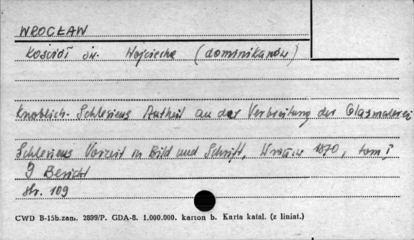 WROCŁAW
Kościół św. Wojciecha (dominikanów)
Knoblich. Schlesiens Antheil an der Verbreitung der Glasmalerei
Schlesiens Vorzeit in Bild und Schrift, 1870, tom I
9 Bericht
str. 109
CWD B-15b.zam. 2899/P. GDA-8. 1.000.000. karton b. Karta katal. (z liniat.)